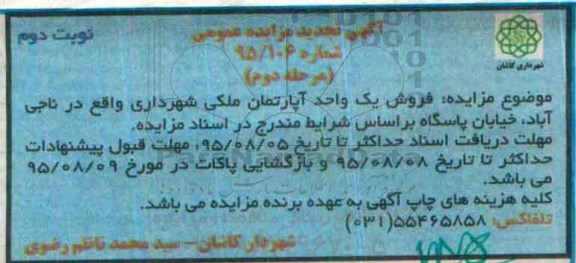 آگهی تجدید مزایده عمومی
شماره ۹۵/۱۰۶
(مرحله دوم)
نوبت دوم
شهرداری کاشان
موضوع مزایده: فروش یک واحد آپارتمان ملکی شهرداری واقع در ناجی
آباد، خیابان پاسگاه براساس شرایط مندرج در اسناد مزایده.
مهلت دریافت اسناد حداکثر تا تاریخ ۹۵/۰۸/۰۵، مهلت قبول پیشنهادات
حداکثر تا تاریخ ۹۵/۰۸/۰۸ و بازگشایی پاکات در مورخ ۹۵/۰۸/۰۹
می باشد.
کلیه هزینه های چاپ آگهی به عهده برنده مزایده می باشد.
تلفاکس: ۵۵۴۶۵۸۵۸(۰۳۱)
شهردار کاشان– سید محمد ناظم رضوی